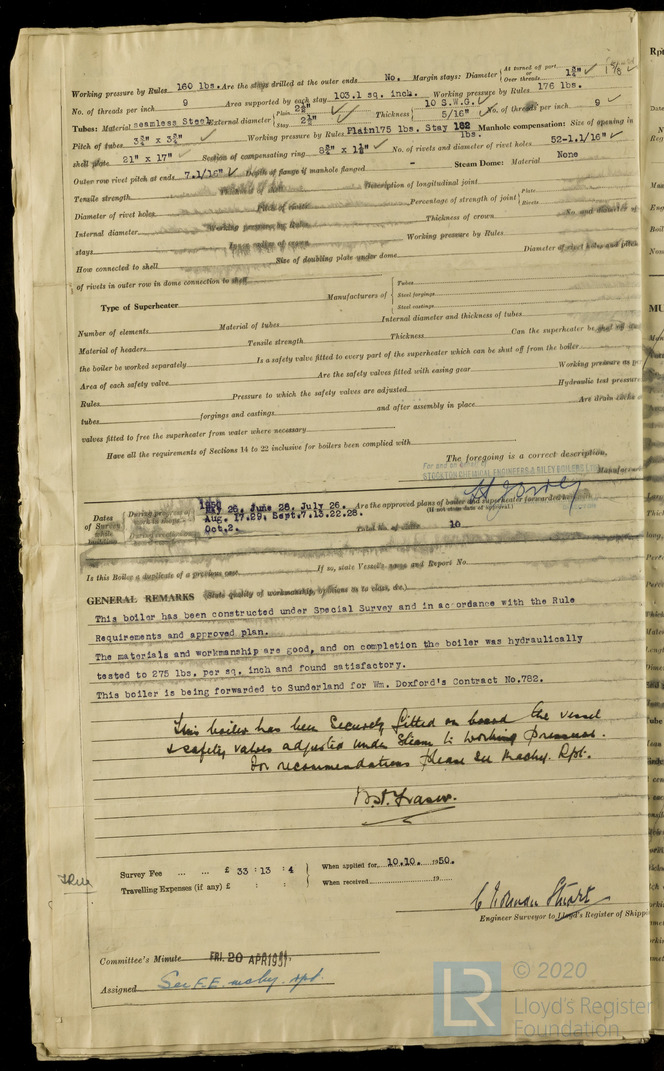 Working pressure by Rules 160 lbs. Are the stays drilled at the outer ends No. Margin stays: Diameter { At turned off part, or Over threads 1¾" ✓
No. of threads per inch 9 Area supported by each stay 103.1 sq. inch. Working pressure by Rules 176 lbs.
Tubes: Material seamless Steel External diameter { Plain 2½" Stay 2½" ✓ Thickness { 10 S.W.G. ✓ 5/16" ✓ No. of threads per inch 9 ✓
Pitch of tubes 3¾" x 3¾" ✓ Working pressure by Rules Plain 175 lbs. Stay 182 lbs. Manhole compensation: Size of opening in
shell plate 21" x 17" ✓ Section of compensating ring 8¾" x 1½" ✓ No. of rivets and diameter of rivet holes 52-1.1/16" ✓
Outer row rivet pitch at ends 7.1/16" ✓ Depth of flange if manhole flanged - Steam Dome: Material None
Tensile strength Thickness of shell Description of longitudinal joint
Diameter of rivet holes Pitch of rivets Percentage of strength of joint { Plate Rivets
Internal diameter Working pressure by Rules Thickness of crown No. and diameter of
stays Inner radius of crown Working pressure by Rules
How connected to shell Size of doubling plate under dome Diameter of rivet holes and pitch
of rivets in outer row in dome connection to shell
Type of Superheater Manufacturers of { Tubes Steel forgings Steel castings
Number of elements Material of tubes Internal diameter and thickness of tubes
Material of headers Tensile strength Thickness Can the superheater be shut off and
the boiler be worked separately Is a safety valve fitted to every part of the superheater which can be shut off from the boiler
Area of each safety valve Are the safety valves fitted with easing gear Working pressure as per
Rules Pressure to which the safety valves are adjusted Hydraulic test pressure
tubes forgings and castings and after assembly in place Are drain cocks or
valves fitted to free the superheater from water where necessary
Have all the requirements of Sections 14 to 22 inclusive for boilers been complied with
The foregoing is a correct description,
For and on behalf of
STOCKTON CHEMICAL ENGINEERS & RILEY BOILERS LTD. Manufacturer
Dates of Survey while building { During progress of work in shops 1950 26, June 28, July 26. Aug. 17.29, Sept.7.13.22.28. Oct.2. Are the approved plans of boiler and superheater forwarded herewith
(If not state date of approval.)
Total No. of visits 10
Is this Boiler a duplicate of a previous case If so, state Vessel's name and Report No.
GENERAL REMARKS (State quality of workmanship, opinions as to class, &c.)
This boiler has been constructed under Special Survey and in accordance with the Rule
Requirements and approved plan.
The materials and workmanship are good, and on completion the boiler was hydraulically
tested to 275 lbs. per sq. inch and found satisfactory.
This boiler is being forwarded to Sunderland for Wm. Doxford's Contract No.782.
This boiler has been securely fitted on board the vessel
& safety valves adjusted under steam to working pressure.
For recommendations please see Machy. Rpt.
Survey Fee ... ... £ 33 : 13 : 4 When applied for 10.10. 1950.
Travelling Expenses (if any) £ : : When received 19
C Norman Stuart
Engineer Surveyor to Lloyd's Register of Shipp
Committee's Minute FRI. 20 APR 1951
Assigned See F.E. mchy. rpt.
LR
© 2020
Lloyd's Register
Foundation